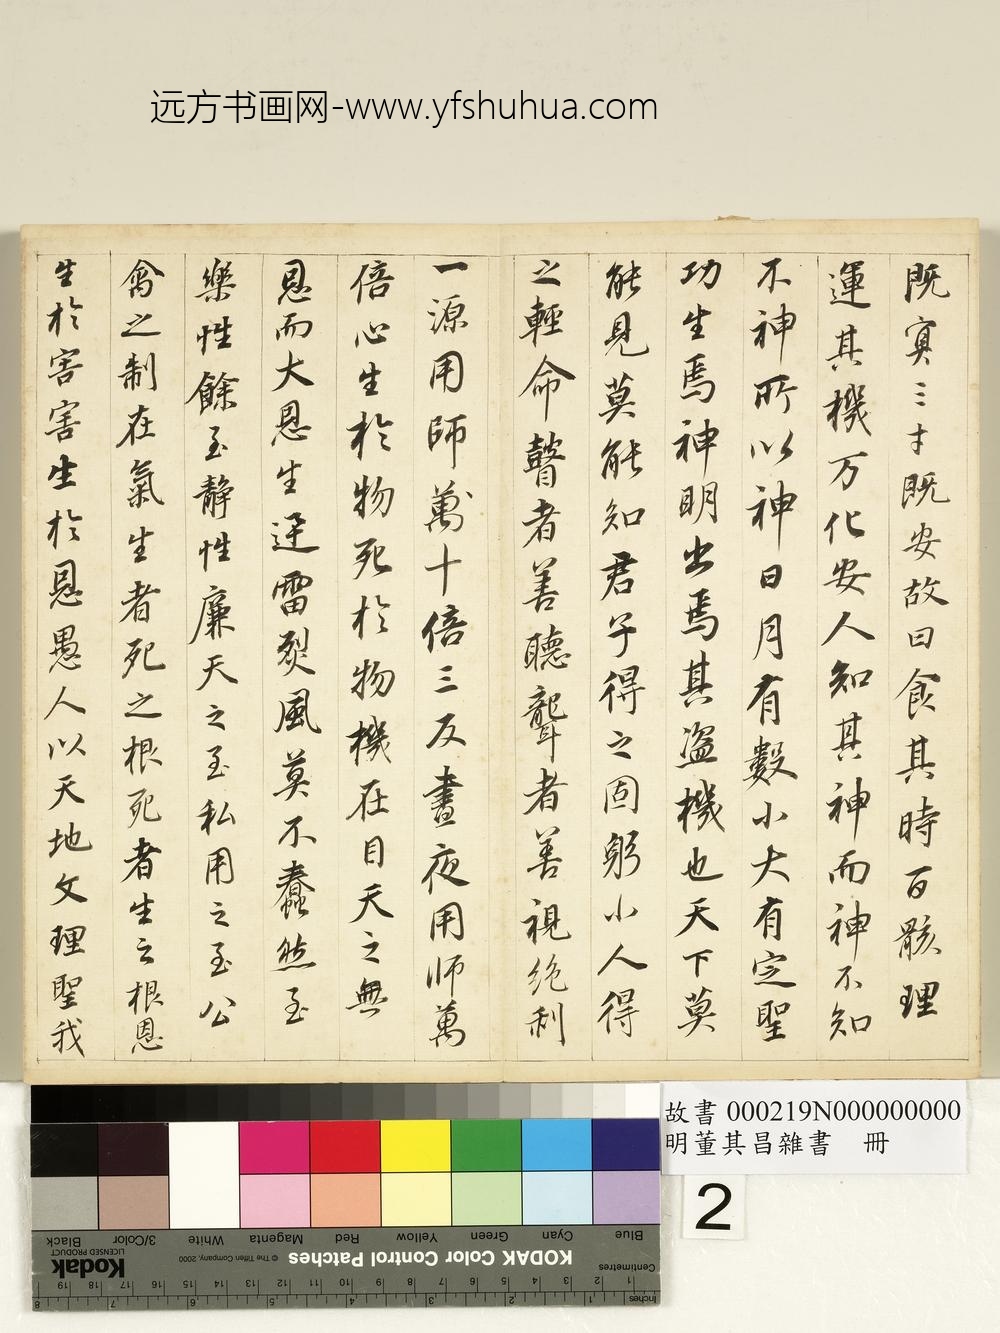 远方书画网-www.yfshuhua.com
既宜三才既安故曰食其時百骸理
運其機万化安人知其神而神不知
不神所以神日月有數小大有定聖
功生焉神明出焉其盜機也天下莫
能見莫能知君子得之固躬小人得
之輕命瞽者善聽聾者善視絶利
一源用師萬十倍三反晝夜用師萬
倍心生於物死於物機在目天之無
恩而大恩生迅雷烈風莫不蠢然至
樂性餘至靜性廉天之至私用之至公
禽之制在氣生者死之根死者生之根恩
生於害害生於恩愚人以天地文理聖我
故書 000219N000000000
明董其昌雜書 冊
2
KODAK Color Control Patches
© The Tiffen Company, 2000
Kodak
LICENSED PRODUCT
Blue
Cyan
Green
Yellow
Red
Magenta
White
3/Color
Black
Centimetres
1 2 3 4 5 6 7 8 9 10 11 12 13 14 15 16 17 18 19
Inches
1 2 3 4 5 6 7 8